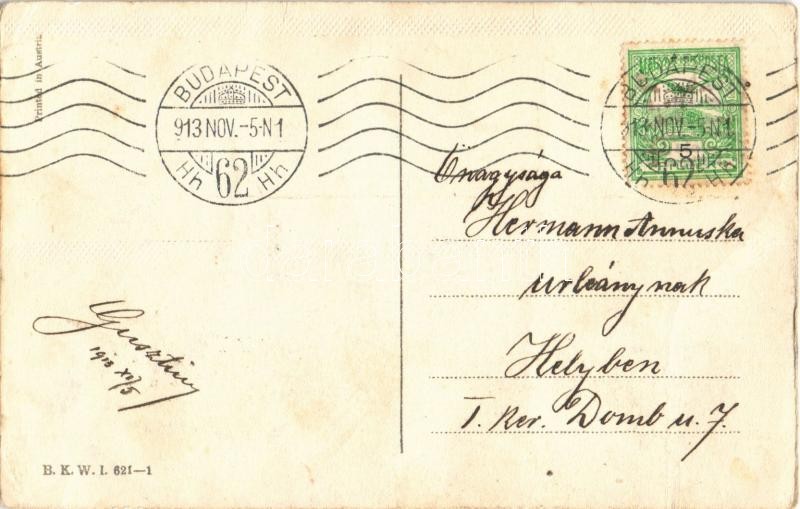 Printed in Austria
BUDAPEST
913 NOV.-5-N1
Hh 62 Hh
BUDAPEST
913 NOV.-5-N1
62
5
Őnagysága
Hermann Annuska
urleánynak
Helyben
I. ker. Domb u. 7.
Gusztáv
1913 XI/5
B. K. W. I. 621-1